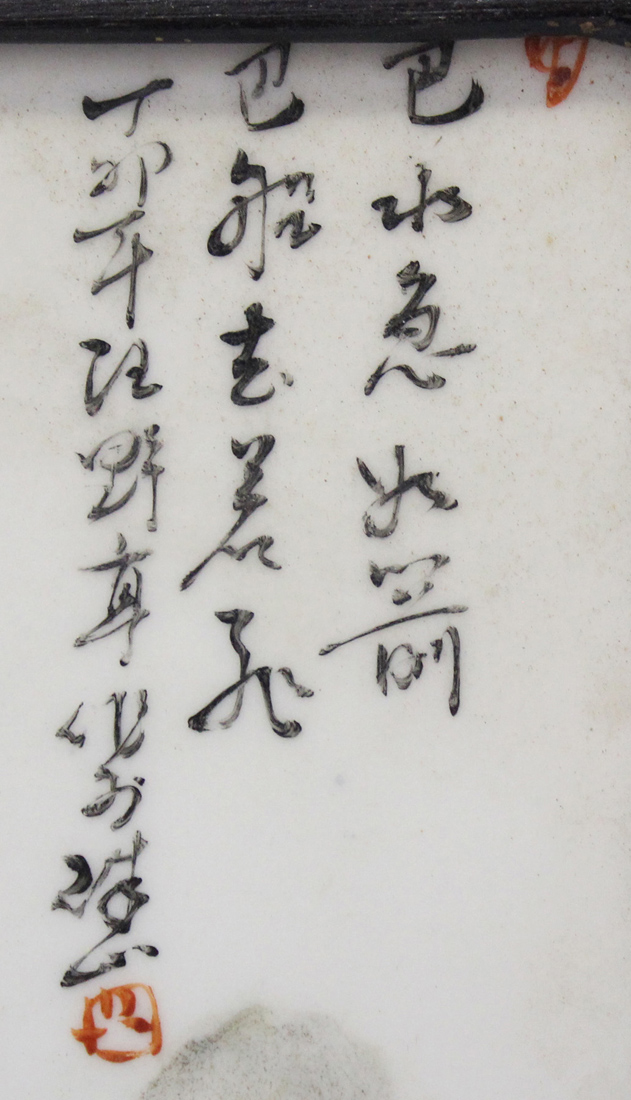 巴水急如箭
巴船去若飛
丁卯年汪野亭作於珠山